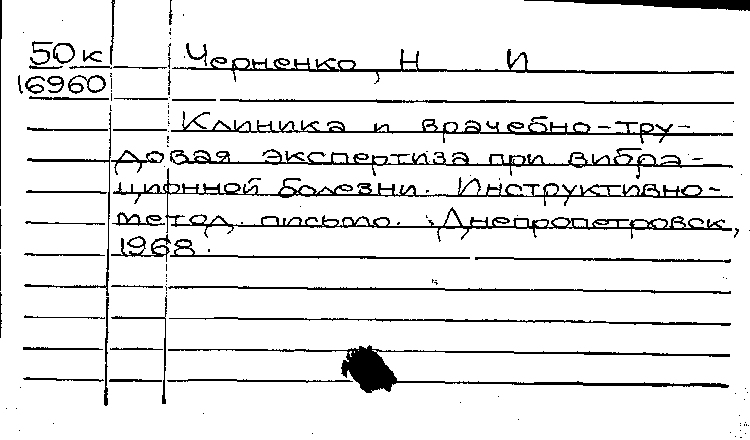 50к Черненко, Н И
16960
Клиника и врачебно-тру-
довая экспертиза при вибра-
ционной болезни. Инструктивно-
метод. письмо. Днепропетровск,
1968.